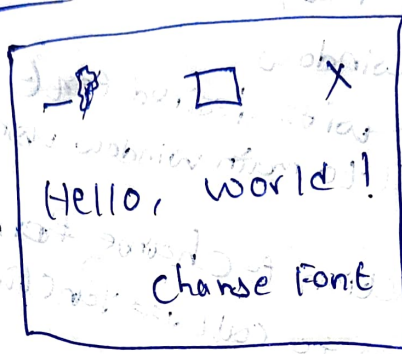 Hello, world!
Change Font